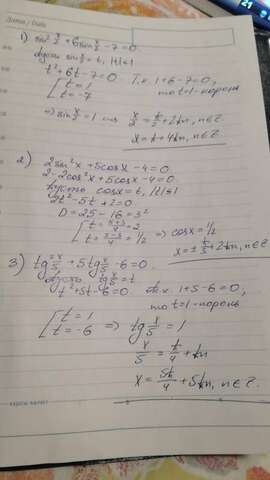 Дата / Date
1) sin² x/2 + 6 sin x/2 - 7 = 0.
Пусть sin x/2 = t, |t| ≤ 1
t² + 6t - 7 = 0 Т.к. 1+6-7=0,
[ t = 1 то t=1 - корень
[ t = -7
=> sin x/2 = 1 x/2 = π/2 + 2πn, n∈Z
x = π + 4πn, n∈Z
2) 2sin²x + 5cosx - 4 = 0.
2 - 2cos²x + 5cosx - 4 = 0.
Пусть cosx = t, |t| ≤ 1
2t² - 5t + 2 = 0
D = 25 - 16 = 3²
[ t = (5+3)/4 = 2
[ t = (5-3)/4 = 1/2 => cosx = 1/2
x = ± π/3 + 2πn, n∈Z
3) tg² x/5 + 5tg x/5 - 6 = 0.
Пусть tg x/5 = t
t² + 5t - 6 = 0. Т.к. 1+5-6=0,
то t=1 - корень
[ t = 1
[ t = -6 => tg x/5 = 1
x/5 = π/4 + πn
x = 5π/4 + 5πn, n∈Z.